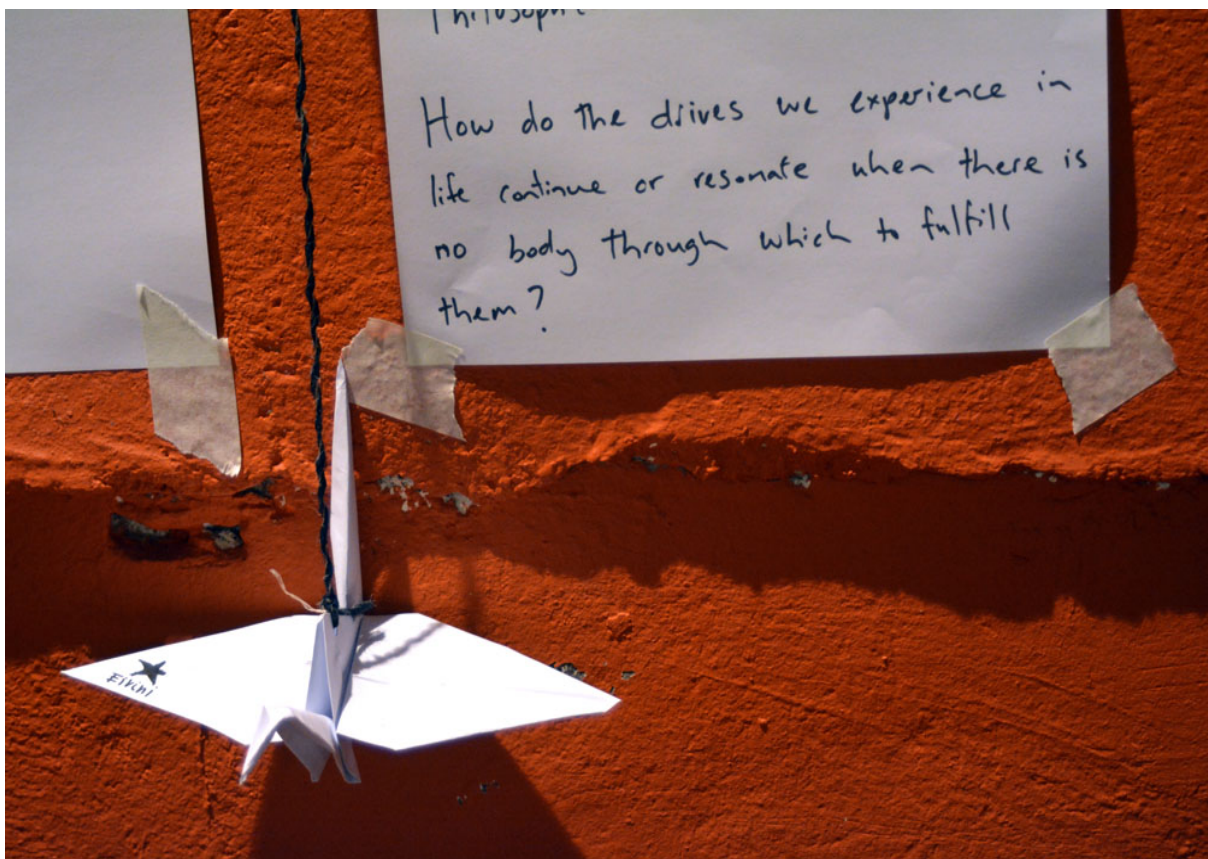 How do the drives we experience in
life continue or resonate when there is
no body through which to fulfill
them?
Eirini